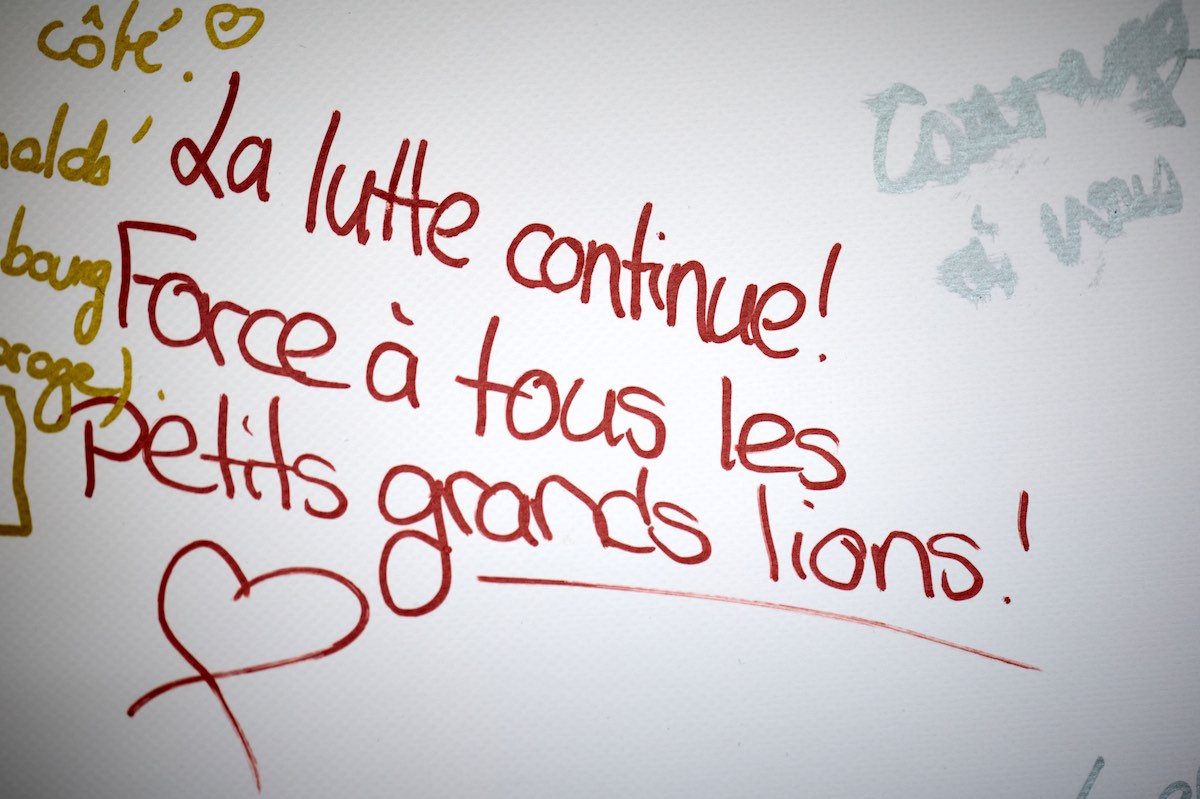 côté.
La lutte continue!
Force à tous les
petits grands lions!
Courage
à nous
bourg